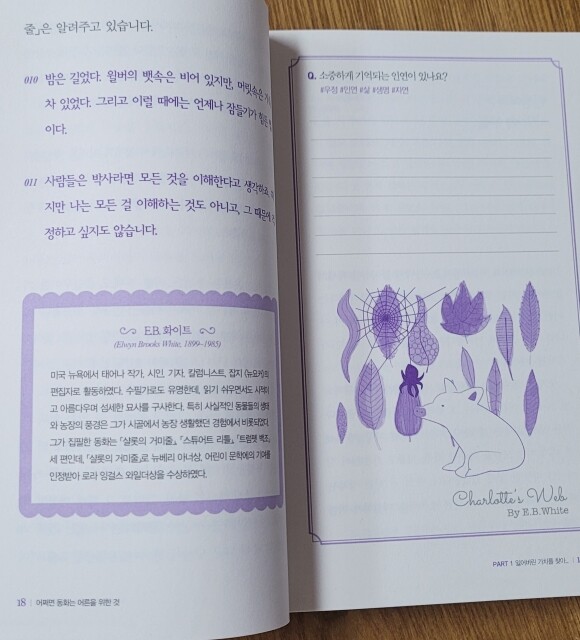 줄』은 알려주고 있습니다.
010 밤은 길었다. 윌버의 뱃속은 비어 있지만, 머릿속은
차 있었다. 그리고 이럴 때에는 언제나 잠들기가
이다.
011 사람들은 박사라면 모든 것을 이해한다고 생각하죠.
지만 나는 모든 걸 이해하는 것도 아니고, 그 때문에
정하고 싶지도 않습니다.
E.B. 화이트
(Elwyn Brooks White, 1899~1985)
미국 뉴욕에서 태어나 작가, 시인, 기자, 칼럼니스트, 잡지 〈뉴요커〉의
편집자로 활동하였다. 수필가로도 유명한데, 읽기 쉬우면서도 시적이
고 아름다우며 섬세한 묘사를 구사한다. 특히 사실적인 동물들의 생태
와 농장의 풍경은 그가 시골에서 농장 생활했던 경험에서 비롯되었다.
그가 집필한 동화는 『샬롯의 거미줄』, 『스튜어트 리틀』, 『트럼펫 백조』,
세 편인데, 『샬롯의 거미줄』로 뉴베리 아너상, 어린이 문학에의 기여를
인정받아 로라 잉걸스 와일더상을 수상하였다.
18 | 어쩌면 동화는 어른을 위한 것
Q. 소중하게 기억되는 인연이 있나요?
#우정 #인연 #삶 #생명 #자연
Charlotte's Web
By E.B.White
PART 1 잃어버린 가치를 찾다_ |